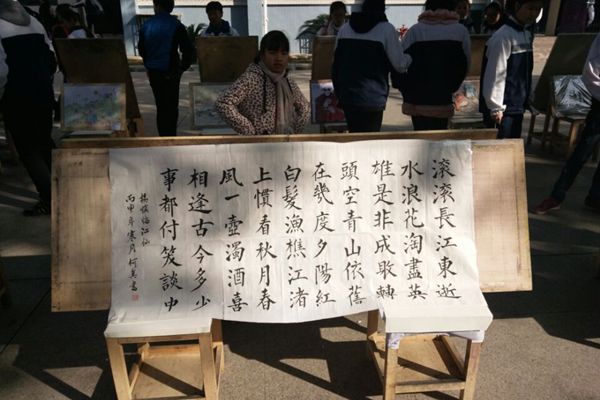 滾滾長江東逝
水浪花淘盡英
雄是非成敗轉
頭空青山依舊
在幾度夕陽紅
白髮漁樵江渚
上慣看秋月春
風一壺濁酒喜
相逢古今多少
事都付笑談中
楊慎臨江仙
丙申年寒月何書